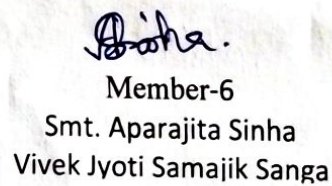 Sinha.
Member-6
Smt. Aparajita Sinha
Vivek Jyoti Samajik Sanga